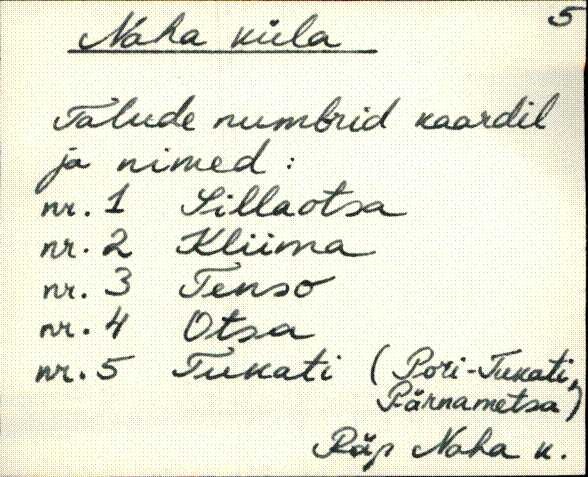 5
Naha küla
Talude numbrid kaardil
ja nimed :
nr. 1 Sillaotsa
nr. 2 Kliima
nr. 3 Tenso
nr. 4 Otsa
nr. 5 Tukati (Pori-Tukati,
Pärnametsa)
Räp Naha k.